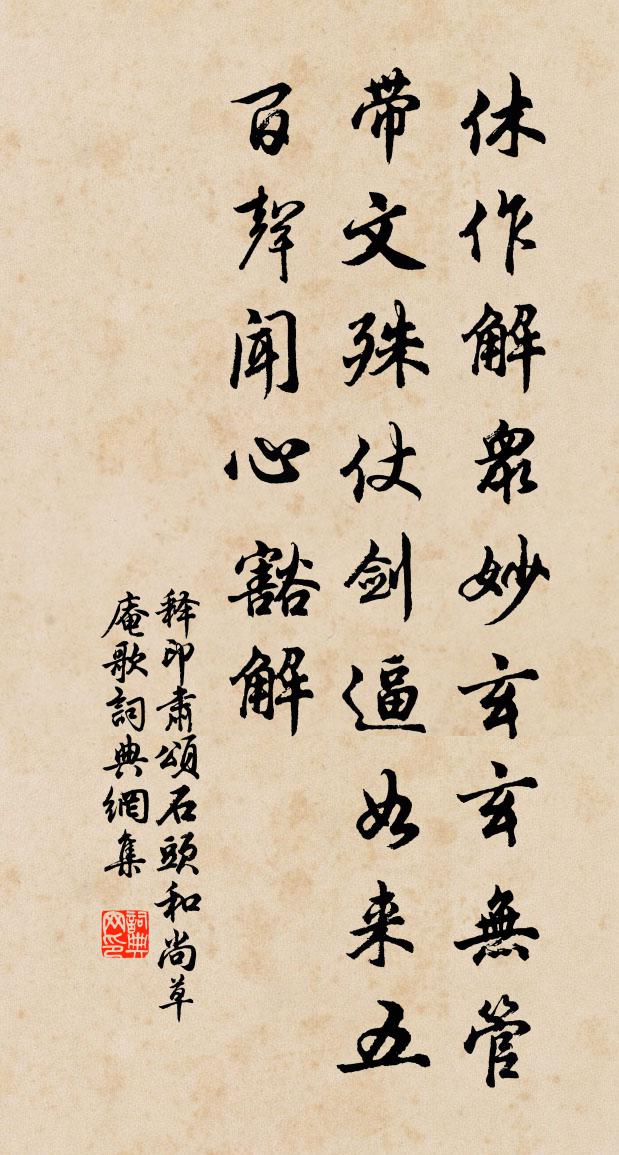 休作解眾妙玄玄無管
带文殊仗剑逼如来五
百聲闻心豁解
释印肃頌石頭和尚草
庵歌詞典網集
詞典网印